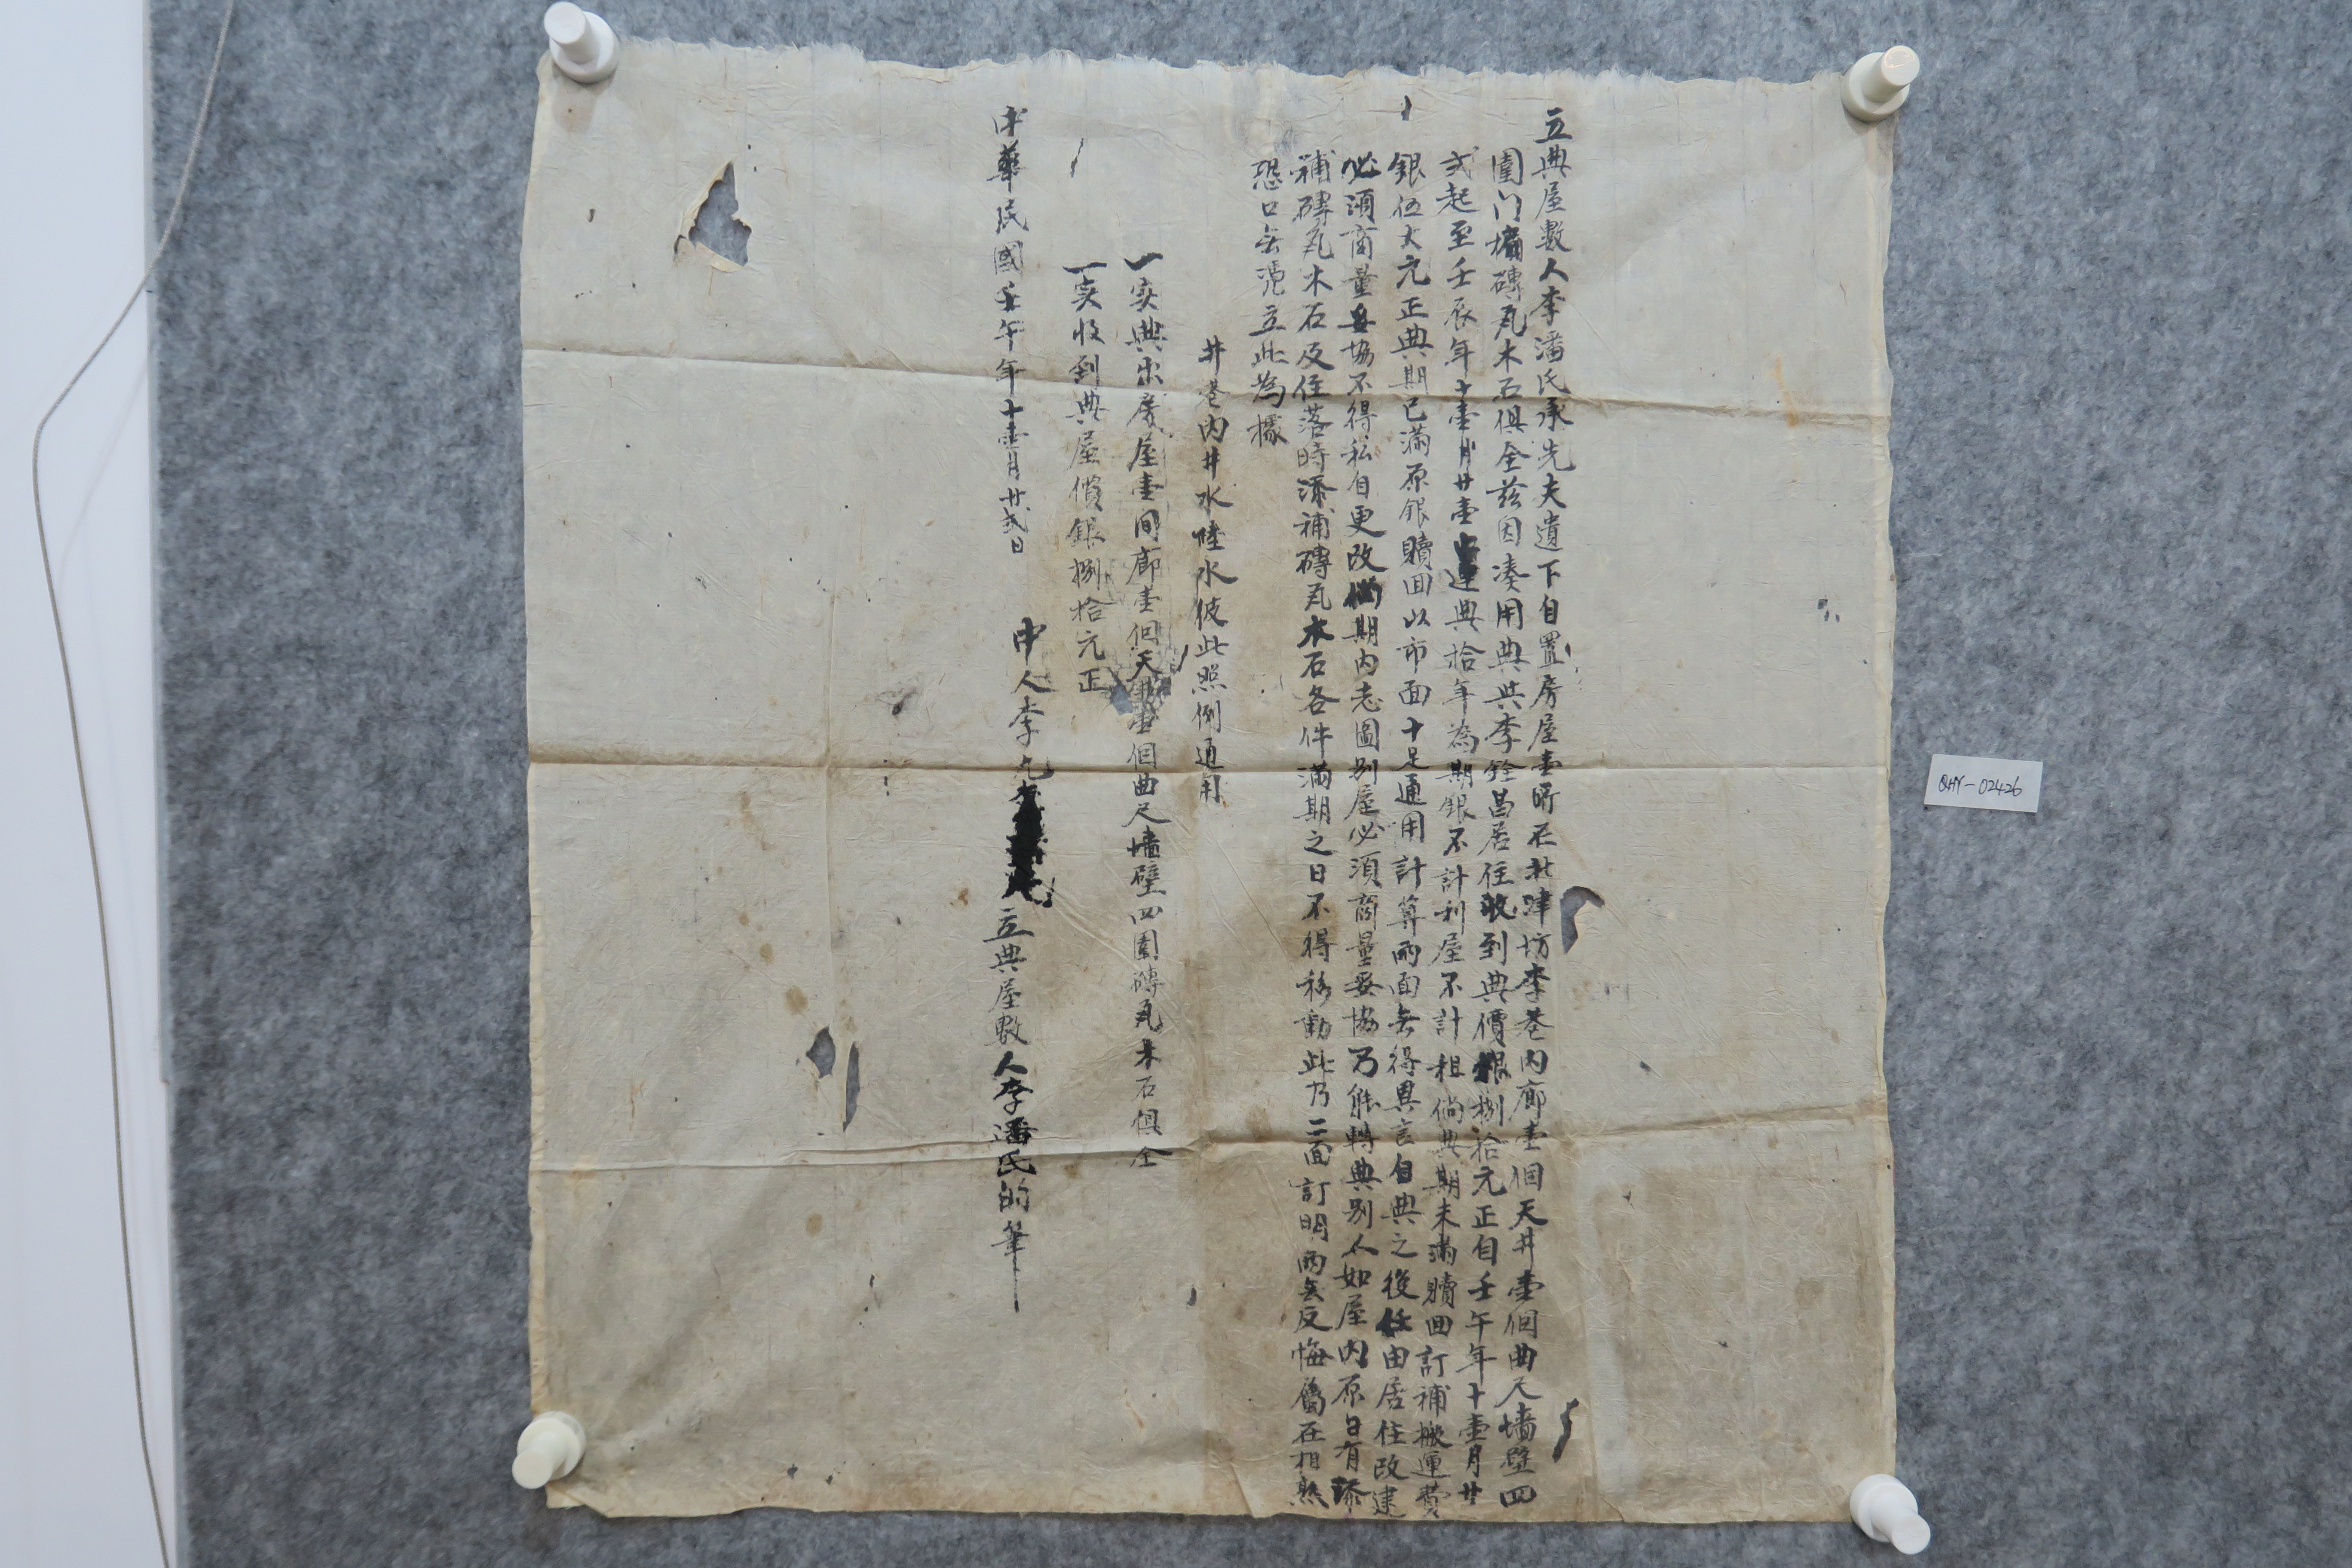 立典屋數人李潘氏承先夫遺下自置房屋壹所在北津坊李巷內廊壹個天井壹個曲尺墻壁四
圍门墻磚瓦木石俱全茲因凑用典與李銓昌居住收到典價銀捌拾元正自壬午年十壹月廿
弍起至壬辰年十壹月廿壹止連典拾年為期銀不計利屋不計租倘典期未滿贖回訂補搬運費
銀伍大元正典期已滿原銀贖回以市面十足通用計算兩面无得異言自典之後任由居住改建
必須商量妥協不得私自更改倘期内志圖别屋必須商量妥協乃能轉典别人如屋内原日有添
補磚瓦木石及住落時添補磚瓦木石各件滿期之日不得移動此乃二面訂明兩无反悔屬在相熟
恐口无憑立此為據
井巷内井水陸水彼此照例通用
一实典出房屋壹间廊壹個天井壹個曲尺墻壁四圍磚瓦木石俱全
一实收到典屋價銀捌拾元正
中華民國壬午年十壹月廿弍日
中人李
立典屋數人李潘氏的筆
QHY-02426